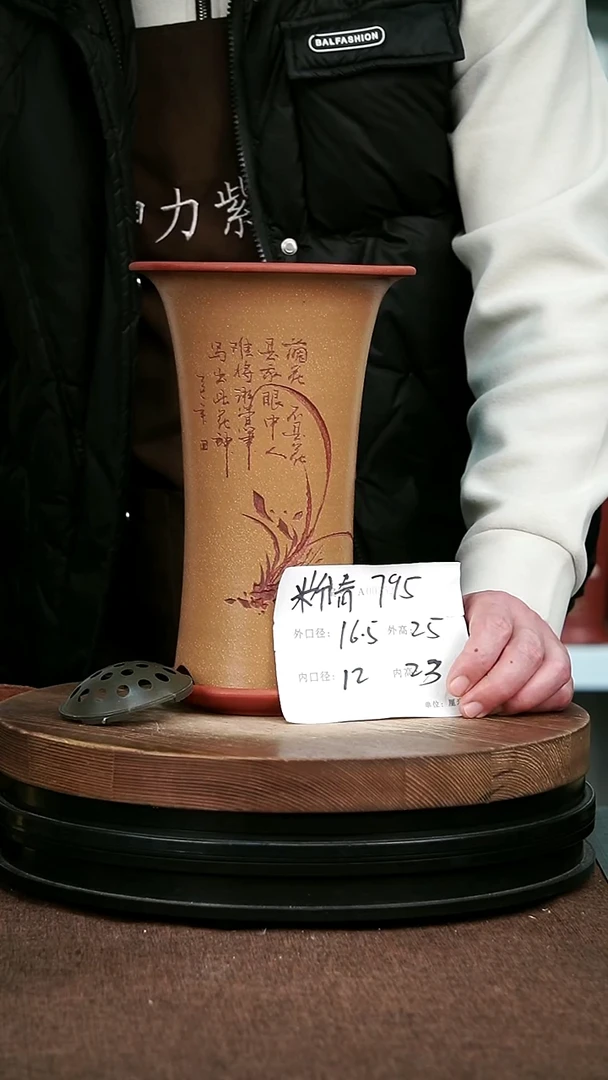 BALFASHION
力紫
兰花不是花
是我眼中人
难将湘管笔
写出此花神
795
外口径: 16.5 外高 25
内口径: 12 内高 23
单位: 厘